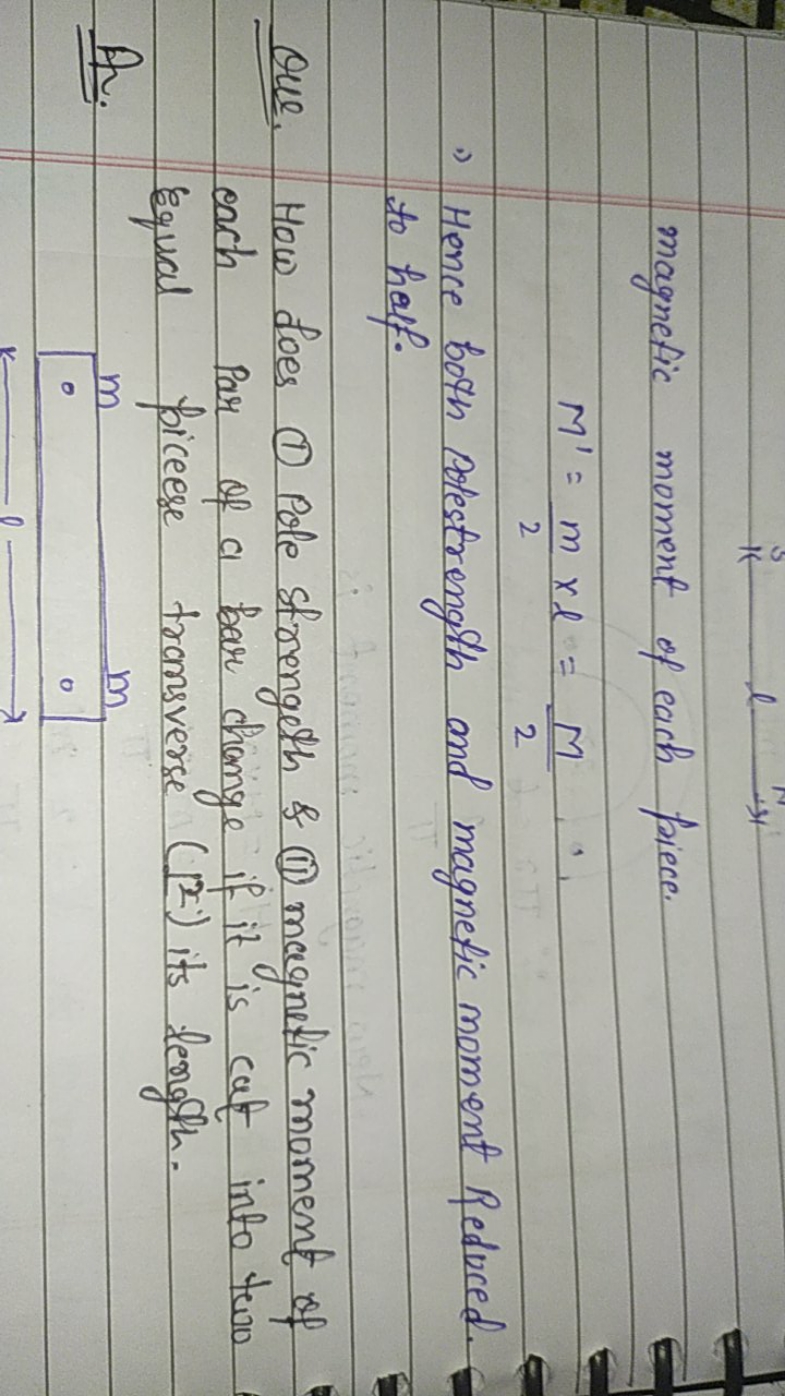 S l N
magnetic moment of each piece.
M' = m/2 x l = M/2
Hence both polestrength and magnetic moment Reduced.
to half.
Que. How does ① Pole strength & ⑪ magnetic moment of
each Par of a bar change if it is cut into two
Equal piceese transverse its length.
An.
m m
l